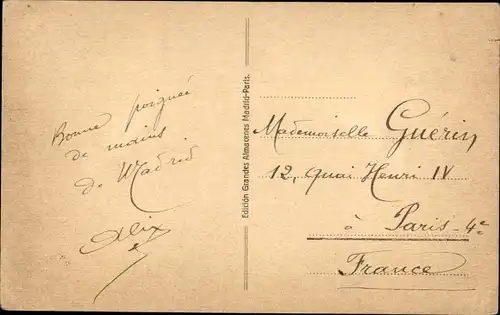 Bonne poignée
de mains
de Madrid
Alix
Edición Grandes Almacenes Madrid-Paris.
Mademoiselle Guérin
12, quai Henri IV
à Paris-4e
France